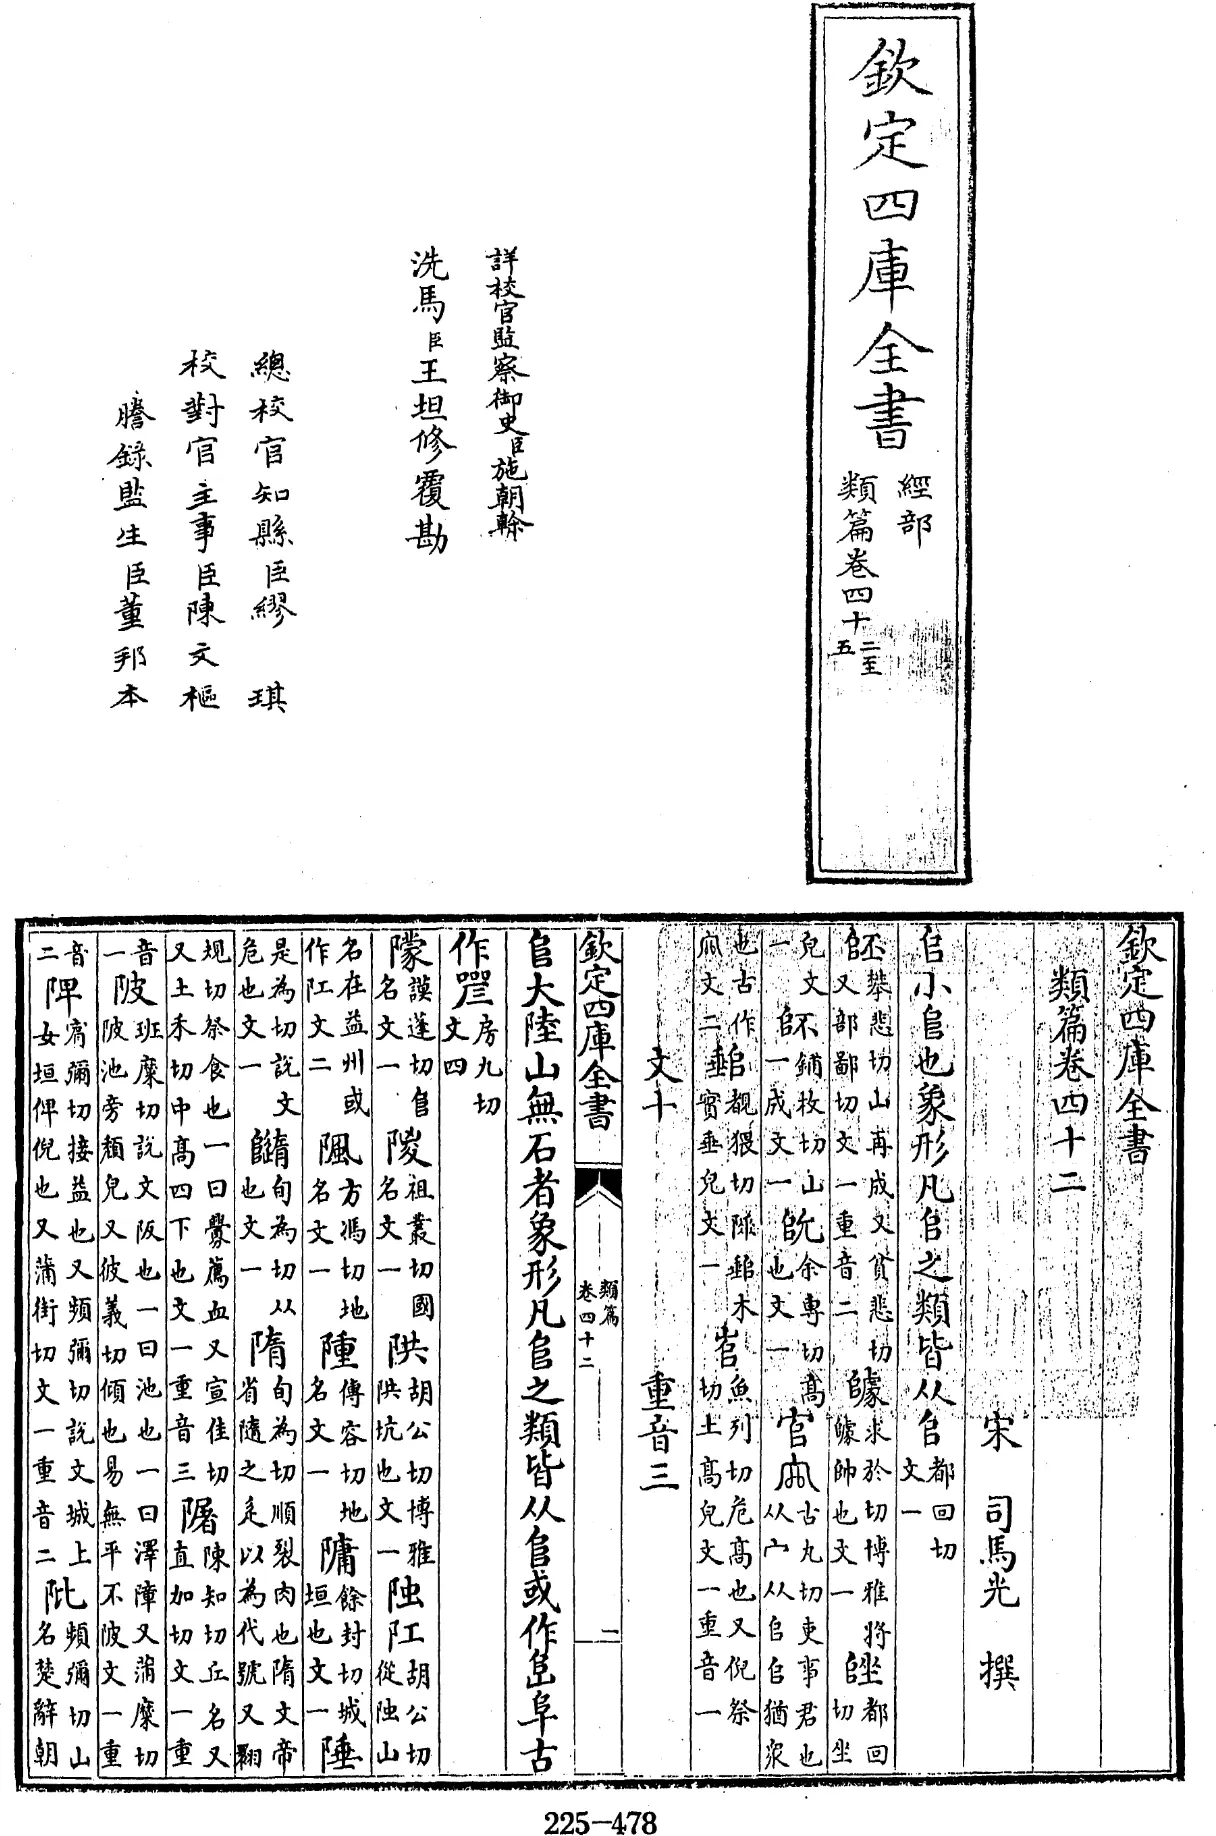 欽定四庫全書
經部
類篇卷四十二至五
詳校官監察御史臣施朝幹
洗馬臣王坦修覆勘
總校官知縣臣繆 琪
校對官主事臣陳文樞
謄錄監生臣董邦本
欽定四庫全書
類篇卷四十二
宋 司馬光 撰
𠂤小𠂤也象形凡𠂤之類皆从𠂤都回切文一
丕攀悲切山再成又貧悲切又部鄙切文一重音二 求於切博雅將帥也文一 都回切坐
皃文一 不鋪枚切山一成文一 余專切髙也文一 官古丸切吏事君也从宀从𠂤𠂤猶衆
也古作文二 覩猥切陮木實垂皃文一 魚列切危髙也又倪祭切土髙皃文一重音一
文十 重音三
欽定四庫全書
類篇
卷四十二
𨸏大陸山無石者象形凡𨸏之類皆从𨸏或作阜古
作房九切文四
謨蓬切𨸏名文一 祖叢切國名文一 胡公切博雅坑也文一 胡公切從山
名在益州或作文二 方馮切地名文一 傳容切地名文一 餘封切城垣也文一 陲
是為切說文危也文一 旬為切从也文一 隋旬為切順裂肉也隋文帝省隨之辵以為代號又翾
規切祭食也一曰釁薦血又宣佳切又土禾切中髙四下也文一重音三 陳知切丘名又直加切文一重
音 陂班糜切說文阪也一曰池也一曰澤障又蒲糜切一陂池旁頹皃又彼義切傾也易無平不陂文一重
音二 陴甯彌切接益也又頻彌切說文城上女垣俾倪也又蒲街切文一重音二 頻彌切山名楚辭朝
225-478